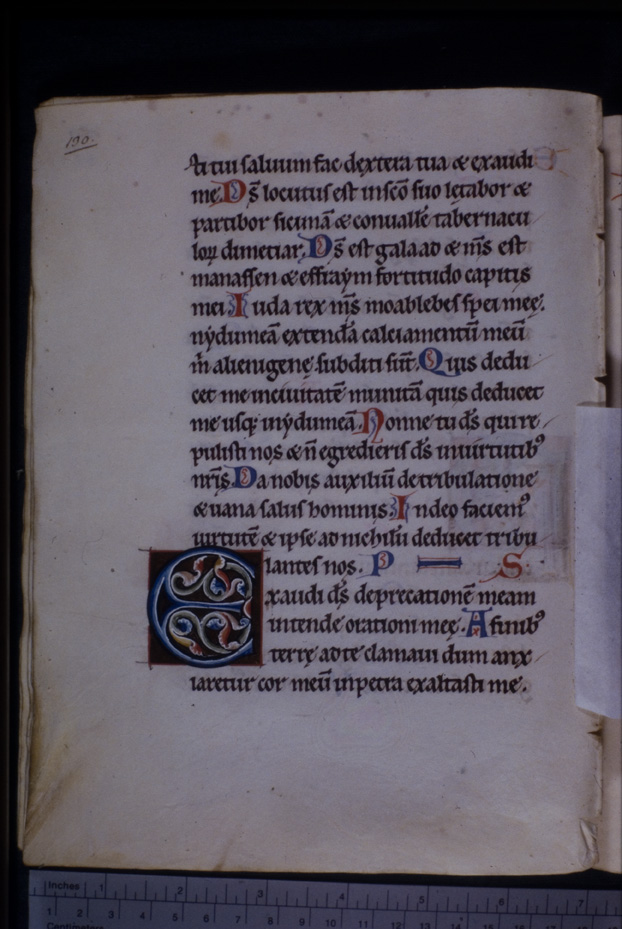 190.
cti tui saluum fac dextera tua & exaudi
me. Ds̄ locutus est insc̄o suo letabor &
partibor sicimā & conuallē tabernacu
loꝝ dimetiar. Ds̄ est galaad & m̄s est
manassen & effraym fortitudo capitis
mei. Iuda rex m̄s moab lebes spei mee.
nydumeā extendā calciamentū meū
m̄ alienigene subditi sūt. Quis dedu
cet me inciuitatē munitā quis deducet
me usq; inydumeā. Nonne tu ds̄ qui re
pulisti nos & n̄ egredieris ds̄ inuirtutibꝰ
nr̄is. Da nobis auxiliū de tribulatione
& uana salus hominis. Indeo faciemꝰ
uirtutē & ipse ad nichilū deducet tribu
lantes nos. P S
Exaudi ds̄ deprecationē meam
intende orationi meę. A finibꝰ
terrę adte clamaui dum anx
iaretur cor meū inpetra exaltasti me.
Inches 1 2 3 4 5 6 7
1 2 3 4 5 6 7 8 9 10 11 12 13 14 15 16 17
Centimeters